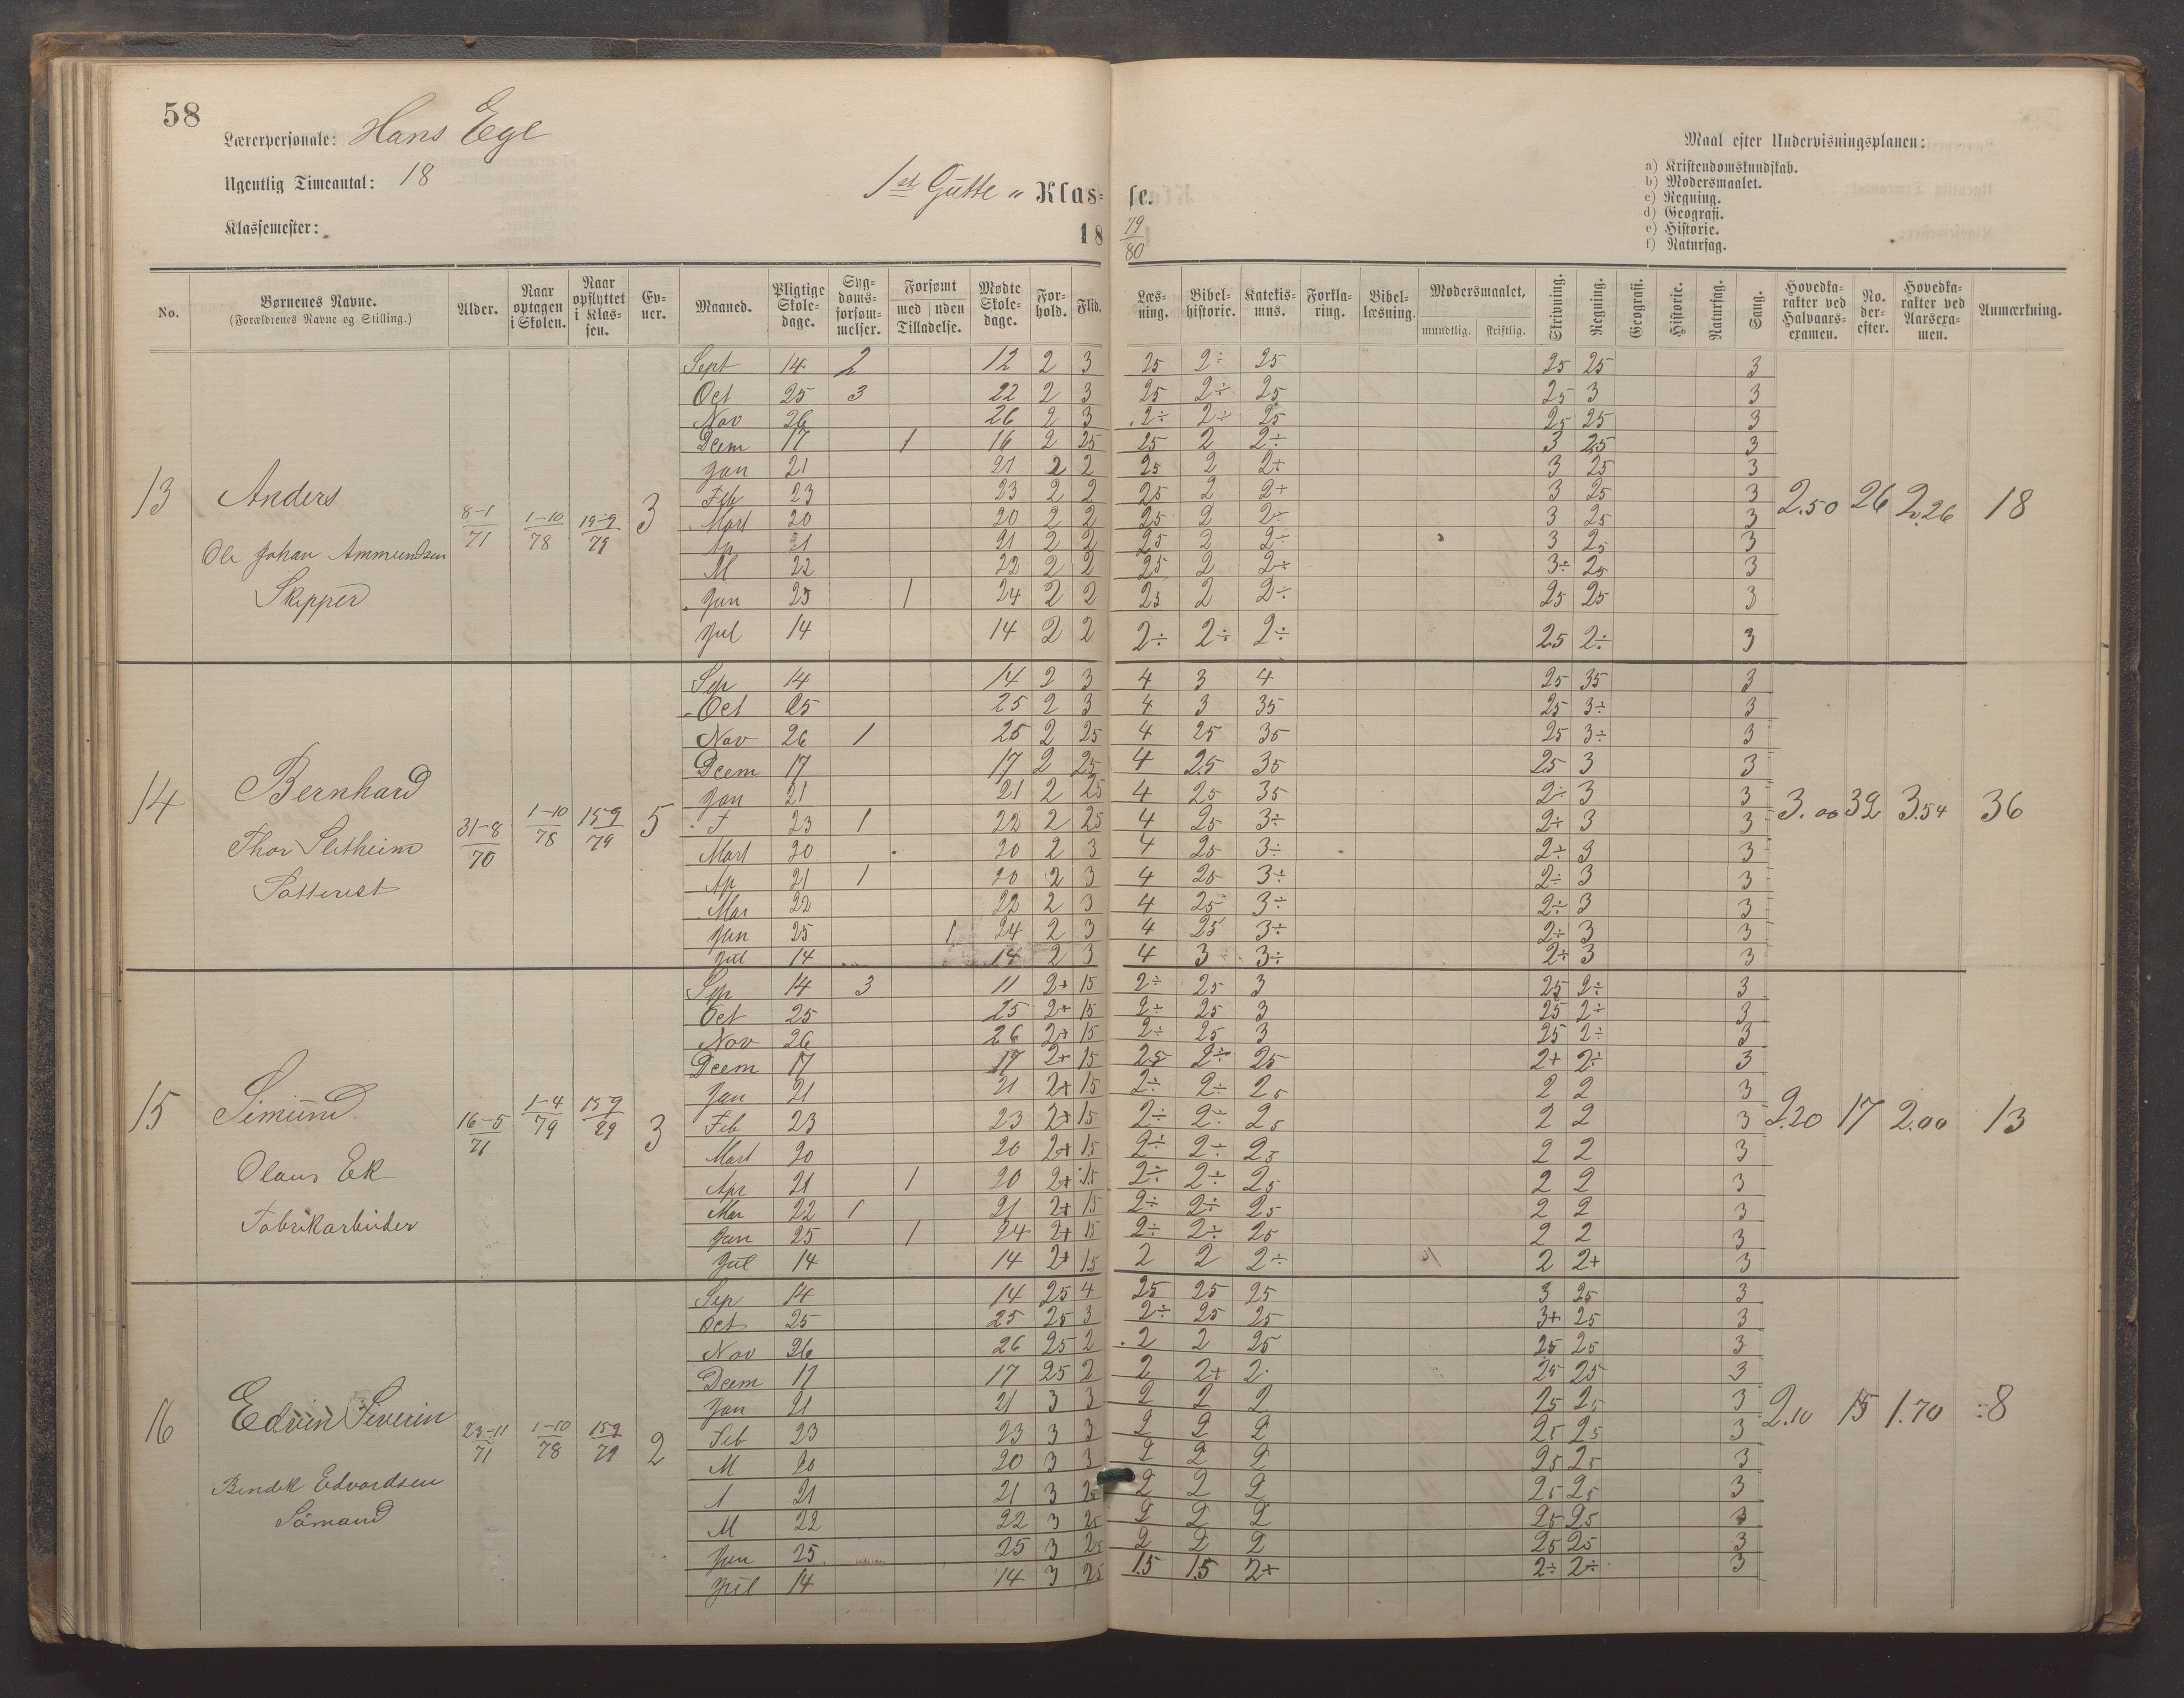 58
Lærerpersonale: Hans Ege
Ugentlig Timeantal: 18
Klassemester:
1st Gutte „ Klas- se.
18 79/80
Maal efter Undervisningsplanen:
a) Kristendomskundskab.
b) Modersmaalet.
c) Regning.
d) Geografi.
e) Historie.
f) Naturfag.
No. | Børnenes Navne. (Forældrenes Navne og Stilling.) | Alder. | Naar optagen i Skolen. | Naar opflyttet i Klassen. | Evner. | Maaned. | Pligtige Skoledage. | Sygdomsforsømmelser. | Forsømt med uden Tilladelse. | Mødte Skoledage. | Forhold. | Flid. | Læsning. | Bibelhistorie. | Katekismus. | Forklaring. | Bibellæsning. | Modersmaalet, mundtlig. skriftlig. | Skrivning. | Regning. | Geografi. | Historie. | Naturfag. | Sang. | Hovedkarakter ved Halvaarsexamen. | No. derefter. | Hovedkarakter ved Aarsexamen. | Anmærkning.
13 Anders
Ole Johan Ammundsen
Skipper
8-1/71 1-10/78 15-9/79 3
Sept 14 2 12 2 3 25 2÷ 25 25 25 3
Oct 25 3 22 2 3 25 2÷ 25 25 3 3
Nov 26 26 2 3 2÷ 2÷ 25 25 25 3
Decm 17 1 16 2 25 25 2 2÷ 3 25 3
Jan 21 21 2 2 25 2 2+ 3 25 3
Feb 23 23 2 2 25 2 2+ 3 25 3
Mart 20 20 2 2 25 2 2÷ 3 25 3
Ap 21 21 2 2 25 2 2÷ 3 25 3
M 22 22 2 2 25 2 2÷ 3÷ 25 3
Jun 25 1 24 2 2 25 2 2÷ 25 25 3
Jul 14 14 2 2 2÷ 2÷ 2÷ 25 2÷ 3
2.50 26 2.26 18
14 Bernhard
Thor Sletheim
31-8/70 1-10/78 15-9/79 5
Sep 14 14 2 3 4 3 4 25 35 3
Oct 25 25 2 3 4 3 35 25 3÷ 3
Nov 26 1 25 2 25 4 25 35 25 3÷ 3
Decm 17 17 2 25 4 25 35 25 3 3
Jan 21 21 2 25 4 25 35 2÷ 3 3
F 23 1 22 2 25 4 25 3÷ 2÷ 3 3
Mart 20 20 2 3 4 25 3÷ 2÷ 3 3
Ap 21 1 20 2 3 4 25 3÷ 2÷ 3 3
Mai 22 22 2 3 4 25 3÷ 2÷ 3 3
Jun 25 1 24 2 3 4 25 3÷ 2÷ 3 3
Jul 14 14 2 3 4 3 3÷ 2÷ 3 3
3.00 32 3.54 36
15 Simund
Olaus Ek
Fabrikarbeider
16-5/71 1-4/79 15-9/79 3
Sep 14 3 11 2+ 15 2÷ 25 3 25 2÷ 3
Oct 25 25 2+ 15 2÷ 25 3 25 2÷ 3
Nov 26 26 2+ 15 2÷ 25 3 25 2÷ 3
Decm 17 17 2+ 15 25 2÷ 25 2+ 2÷ 3
Jan 21 21 2+ 15 2÷ 2÷ 25 2 2 3
Feb 23 23 2+ 15 2÷ 2÷ 25 2 2 3
Mart 20 20 2+ 15 2÷ 2÷ 25 2 2 3
Apr 21 1 20 2+ 15 2÷ 2÷ 25 2 2 3
Mai 22 1 21 2+ 15 2÷ 2÷ 25 2 2 3
Jun 25 1 24 2+ 15 2÷ 2÷ 25 2 2 3
Jul 14 14 2+ 15 2 2 2÷ 2 2+ 3
2.20 17 2.00 13
16 Edvin Siverin
Bendik Edvardsen
Sømand
23-11/71 1-10/78 15-9/79 2
Sep 14 14 25 4 25 25 25 3 25 3
Oct 25 25 25 3 2÷ 25 25 3+ 25 3
Nov 26 26 25 2 2 2 25 25 25 3
Decm 17 17 25 2 2 2+ 2 25 25 3
Jan 21 21 3 3 2 2 2 25 25 3
Feb 23 23 3 3 2 2 2 25 25 3
M 20 20 3 3 2 2 2 25 25 3
A 21 21 3 25 2 2 2 25 25 3
M 22 22 3 25 2 2 2 25 25 3
Jun 25 25 3 25 2 2 2 25 25 3
Jul 14 14 3 25 15 15 2+ 2÷ 2÷ 3
2.10 15 1.70 8